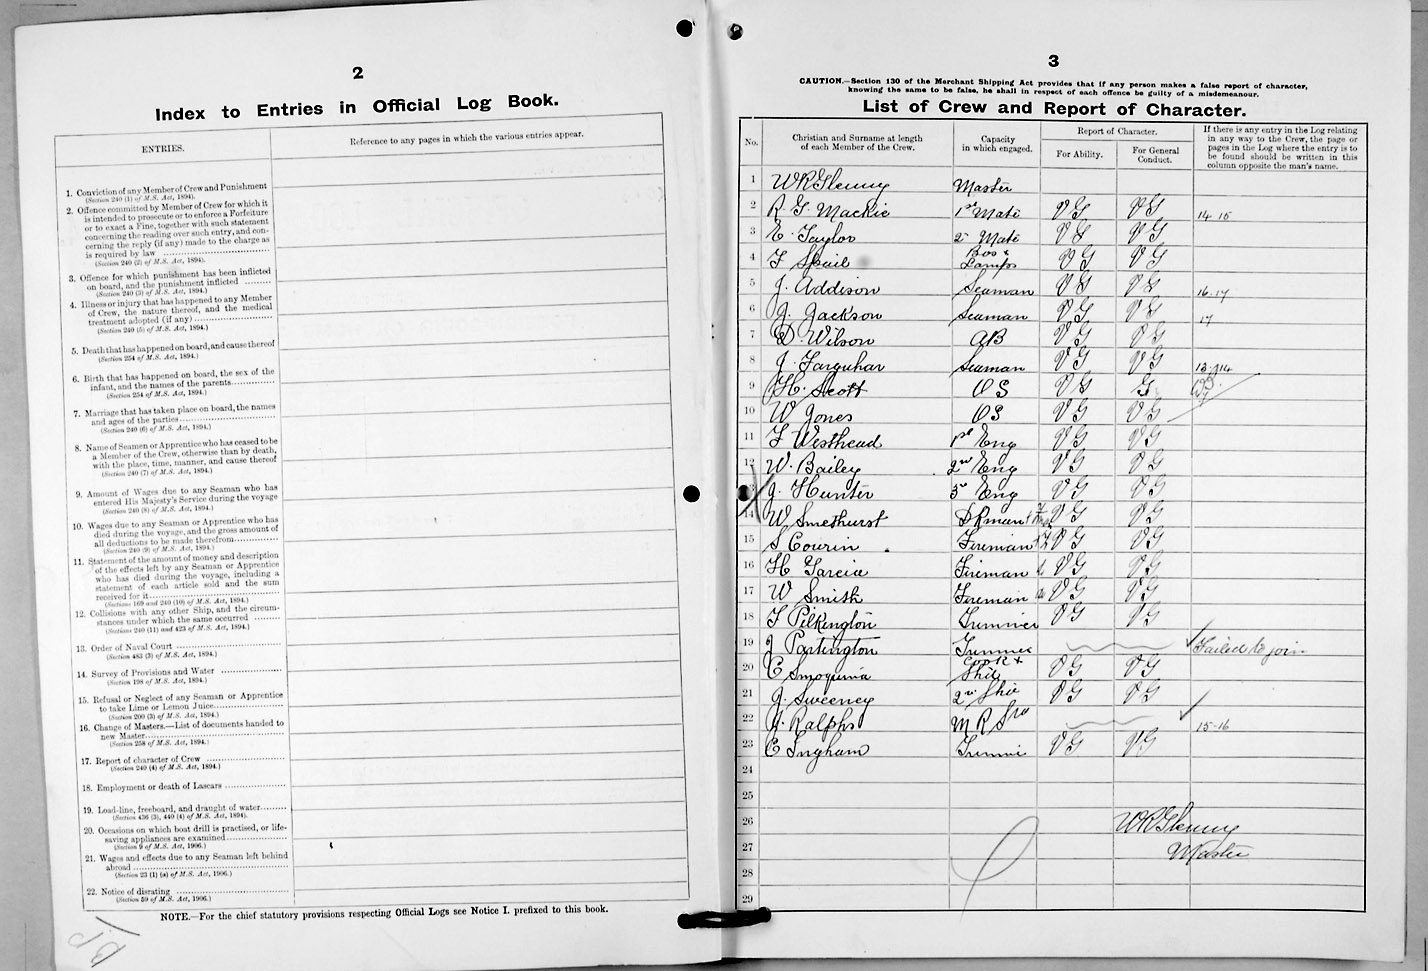 2
Index to Entries in Official Log Book.
ENTRIES.
Reference to any pages in which the various entries appear.
1. Conviction of any Member of Crew and Punishment
(Section 240 (1) of M.S. Act, 1894).
2. Offence committed by Member of Crew for which it
is intended to prosecute or to enforce a Forfeiture
or to exact a Fine, together with such statement
concerning the reading over such entry, and con-
cerning the reply (if any) made to the charge as
is required by law
(Section 240 (2) of M.S. Act, 1894).
3. Offence for which punishment has been inflicted
on board, and the punishment inflicted
(Section 240 (3) of M.S. Act, 1894.)
4. Illness or injury that has happened to any Member
of Crew, the nature thereof, and the medical
treatment adopted (if any)
(Section 240 (5) of M.S. Act, 1894.)
5. Death that has happened on board, and cause thereof
(Section 254 of M.S. Act, 1894.)
6. Birth that has happened on board, the sex of the
infant, and the names of the parents
(Section 254 of M.S. Act, 1894.)
7. Marriage that has taken place on board, the names
and ages of the parties
(Section 240 (6) of M.S. Act, 1894.)
8. Name of Seamen or Apprentice who has ceased to be
a Member of the Crew, otherwise than by death,
with the place, time, manner, and cause thereof
(Section 240 (7) of M.S. Act, 1894.)
9. Amount of Wages due to any Seaman who has
entered His Majesty's Service during the voyage
(Section 240 (8) of M.S. Act, 1894.)
10. Wages due to any Seaman or Apprentice who has
died during the voyage, and the gross amount of
all deductions to be made therefrom
(Section 240 (9) of M.S. Act, 1894.)
11. Statement of the amount of money and description
of the effects left by any Seaman or Apprentice
who has died during the voyage, including a
statement of each article sold and the sum
received for it
(Sections 169 and 240 (10) of M.S. Act, 1894.)
12. Collisions with any other Ship, and the circum-
stances under which the same occurred
(Sections 240 (11) and 423 of M.S. Act, 1894.)
13. Order of Naval Court
(Section 483 (3) of M.S. Act, 1894.)
14. Survey of Provisions and Water
(Section 198 of M.S. Act, 1894.)
15. Refusal or Neglect of any Seaman or Apprentice
to take Lime or Lemon Juice
(Section 200 (3) of M.S. Act, 1894.)
16. Change of Masters.—List of documents handed to
new Master
(Section 258 of M.S. Act, 1894.)
17. Report of character of Crew
(Section 240 (4) of M.S. Act, 1894.)
18. Employment or death of Lascars
19. Load-line, freeboard, and draught of water
(Section 436 (3), 440 (4) of M.S. Act, 1894).
20. Occasions on which boat drill is practised, or life-
saving appliances are examined
(Section 9 of M.S. Act, 1906.)
21. Wages and effects due to any Seaman left behind
abroad
(Section 28 (1) (a) of M.S. Act, 1906.)
22. Notice of disrating
(Section 59 of M.S. Act, 1906.)
NOTE.—For the chief statutory provisions respecting Official Logs see Notice I. prefixed to this book.
3
CAUTION.—Section 130 of the Merchant Shipping Act provides that if any person makes a false report of character,
knowing the same to be false, he shall in respect of each offence be guilty of a misdemeanour.
List of Crew and Report of Character.
No.
Christian and Surname at length
of each Member of the Crew.
Capacity
in which engaged.
Report of Character.
For Ability.
For General
Conduct.
If there is any entry in the Log relating
in any way to the Crew, the page or
pages in the Log where the entry is to
be found should be written in this
column opposite the man's name.
1 W R Glenny Master
2 R G. Mackie 1st Mate VG VG 14 15
3 E. Taylor 2 Mate VG VG
4 F Spail Bos & Lamps VG VG
5 J. Addison Seaman VG VG 16-17
6 J. Jackson Seaman VG VG 17
7 D. Wilson AB VG VG
8 J. Farquhar Seaman VG VG 13-14
9 H. Scott OS VG G
10 W Jones OS VG VG
11 F Westhead 1st Eng VG VG
12 W. Bailey 2nd Eng VG VG
13 J. Hunter 3 Eng VG VG
14 W Smethurst DKman VG VG
15 S Courin Fireman VG VG
16 H Garcia Fireman VG VG
17 W Smith Fireman VG VG
18 F Pilkington Trimmer VG VG
19 J Partington Trimmer Failed to join
20 C Smoquina Cook & Std VG VG
21 J. Sweeney 2nd Std VG VG
22 J. Ralphs M R 15-16
23 C Ingham Trimmer VG VG
24
25
26 W R Glenny
27 Master
28
29